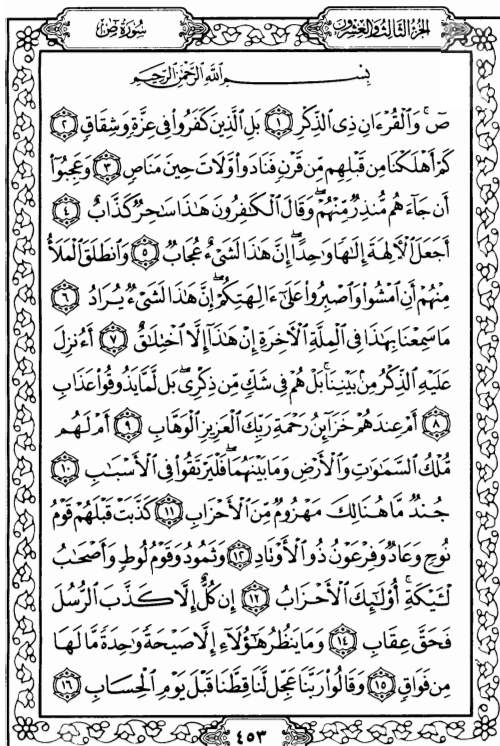 سُورَةُ صٓ
الجُزْءُ الثَّالِثُ وَالعِشْرُونَ
بِسْمِ ٱللَّهِ ٱلرَّحْمَٰنِ ٱلرَّحِيمِ
صٓۚ وَٱلْقُرْءَانِ ذِى ٱلذِّكْرِ ١ بَلِ ٱلَّذِينَ كَفَرُوا۟ فِى عِزَّةٍ وَشِقَاقٍ ٢
كَمْ أَهْلَكْنَا مِن قَبْلِهِم مِّن قَرْنٍ فَنَادَوا۟ وَّلَاتَ حِينَ مَنَاصٍ ٣ وَعَجِبُوٓا۟
أَن جَآءَهُم مُّنذِرٌ مِّنْهُمْۖ وَقَالَ ٱلْكَٰفِرُونَ هَٰذَا سَٰحِرٌ كَذَّابٌ ٤
أَجَعَلَ ٱلْءَالِهَةَ إِلَٰهًا وَٰحِدًاۖ إِنَّ هَٰذَا لَشَىْءٌ عُجَابٌ ٥ وَٱنطَلَقَ ٱلْمَلَأُ
مِنْهُمْ أَنِ ٱمْشُوا۟ وَٱصْبِرُوا۟ عَلَىٰٓ ءَالِهَتِكُمْۖ إِنَّ هَٰذَا لَشَىْءٌ يُرَادُ ٦
مَا سَمِعْنَا بِهَٰذَا فِى ٱلْمِلَّةِ ٱلْءَاخِرَةِ إِنْ هَٰذَآ إِلَّا ٱخْتِلَٰقٌ ٧ أَءُنزِلَ
عَلَيْهِ ٱلذِّكْرُ مِنۢ بَيْنِنَاۚ بَلْ هُمْ فِى شَكٍّ مِّن ذِكْرِىۖ بَل لَّمَّا يَذُوقُوا۟ عَذَابِ
٨ أَمْ عِندَهُمْ خَزَآئِنُ رَحْمَةِ رَبِّكَ ٱلْعَزِيزِ ٱلْوَهَّابِ ٩ أَمْ لَهُم
مُّلْكُ ٱلسَّمَٰوَٰتِ وَٱلْأَرْضِ وَمَا بَيْنَهُمَاۖ فَلْيَرْتَقُوا۟ فِى ٱلْأَسْبَٰبِ ١٠
جُندٌ مَّا هُنَالِكَ مَهْزُومٌ مِّنَ ٱلْأَحْزَابِ ١١ كَذَّبَتْ قَبْلَهُمْ قَوْمُ
نُوحٍ وَعَادٌ وَفِرْعَوْنُ ذُو ٱلْأَوْتَادِ ١٢ وَثَمُودُ وَقَوْمُ لُوطٍ وَأَصْحَٰبُ
لْـَٔيْكَةِۚ أُو۟لَٰٓئِكَ ٱلْأَحْزَابُ ١٣ إِن كُلٌّ إِلَّا كَذَّبَ ٱلرُّسُلَ
فَحَقَّ عِقَابِ ١٤ وَمَا يَنظُرُ هَٰٓؤُلَآءِ إِلَّا صَيْحَةً وَٰحِدَةً مَّا لَهَا
مِن فَوَاقٍ ١٥ وَقَالُوا۟ رَبَّنَا عَجِّل لَّنَا قِطَّنَا قَبْلَ يَوْمِ ٱلْحِسَابِ ١٦
٤٥٣